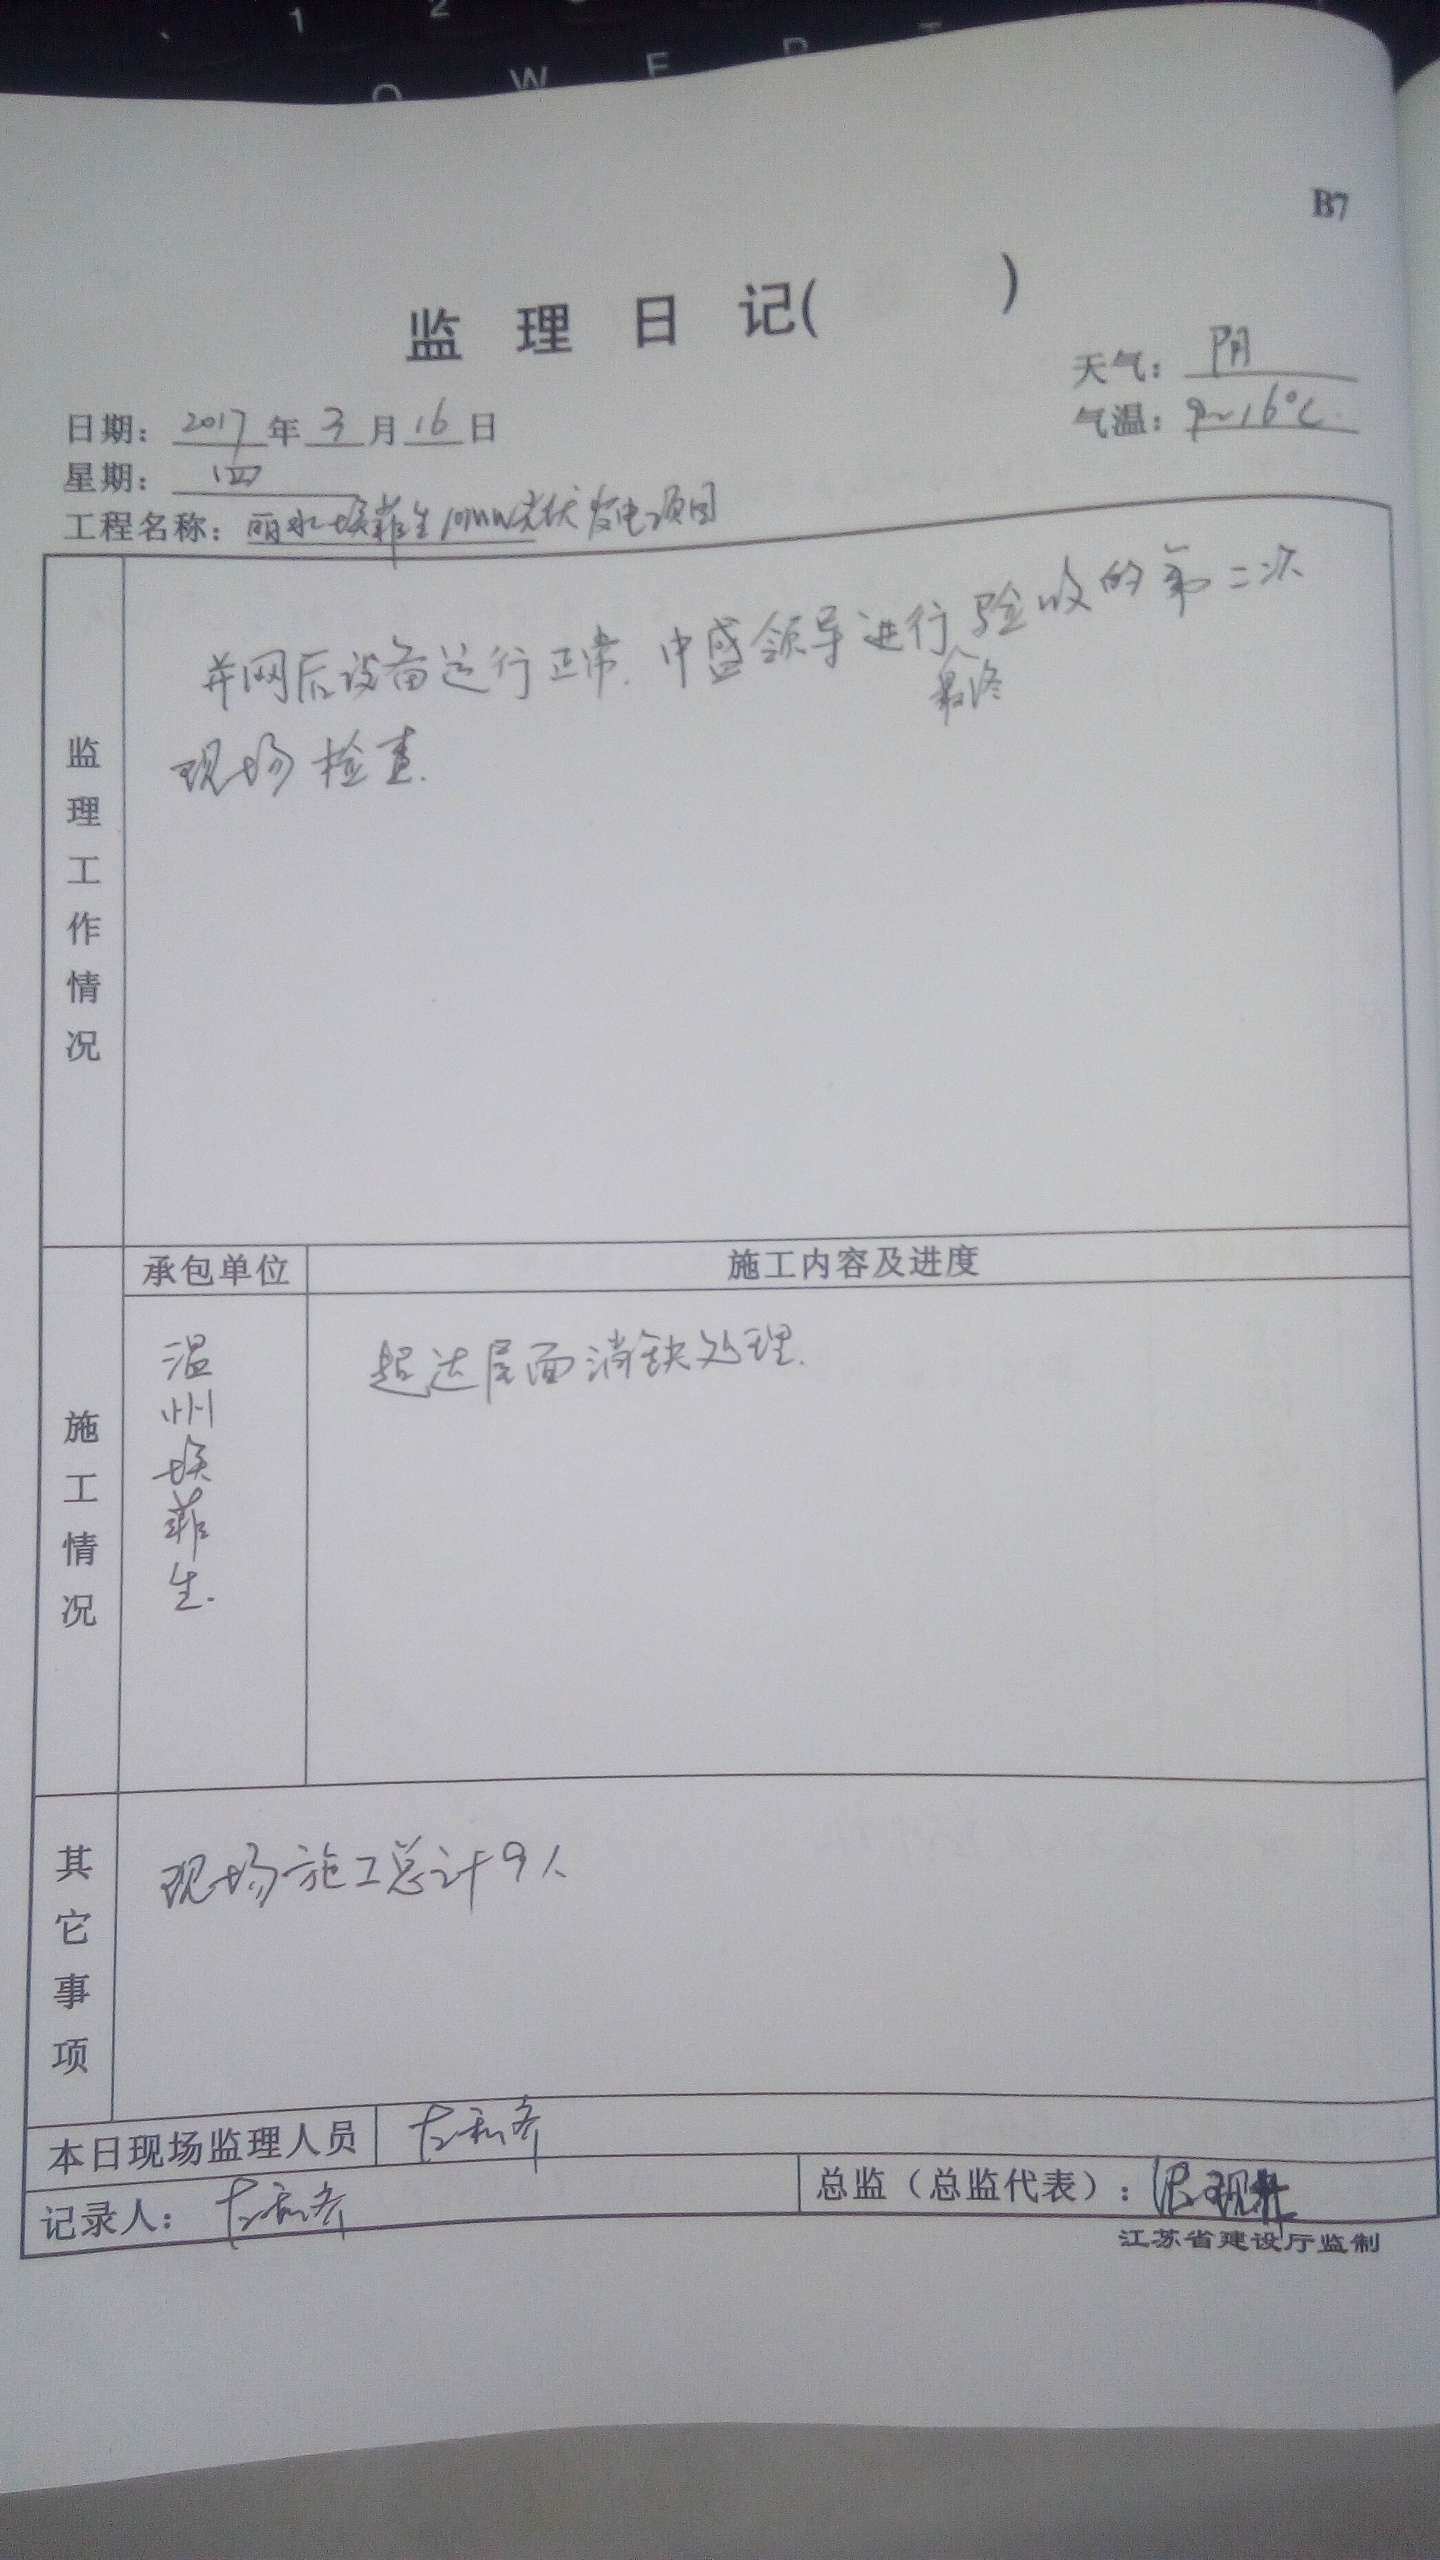 1 2
Q W E R T
B7
监 理 日 记( )
天气：阴
日期：2017年3月16日
气温：9~16℃.
星期：四
工程名称：丽水埃菲生10MW光伏发电项目
监理工作情况
并网后设备运行正常.中盛领导进行最终验收的第二次
现场检查.
施工情况
承包单位
施工内容及进度
温州埃菲生.
起达屋面消缺处理.
其它事项
现场施工总计9人
本日现场监理人员
记录人：
总监（总监代表）：
江苏省建设厅监制